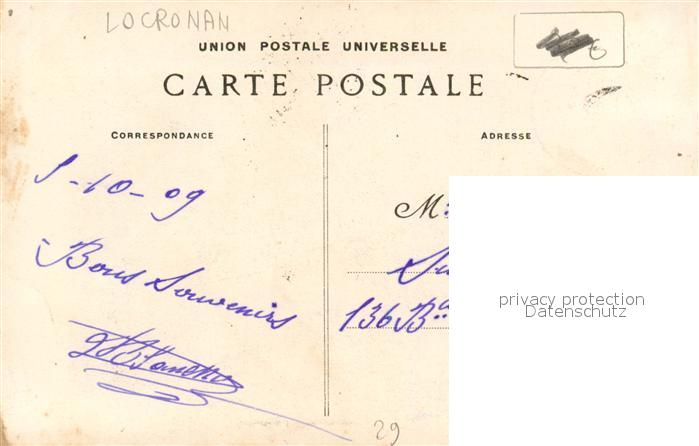 LOCRONAN
UNION POSTALE UNIVERSELLE
CARTE POSTALE
CORRESPONDANCE
ADRESSE
5-10-09
M
Bons Souvenirs
136 B
privacy protection
Datenschutz
29